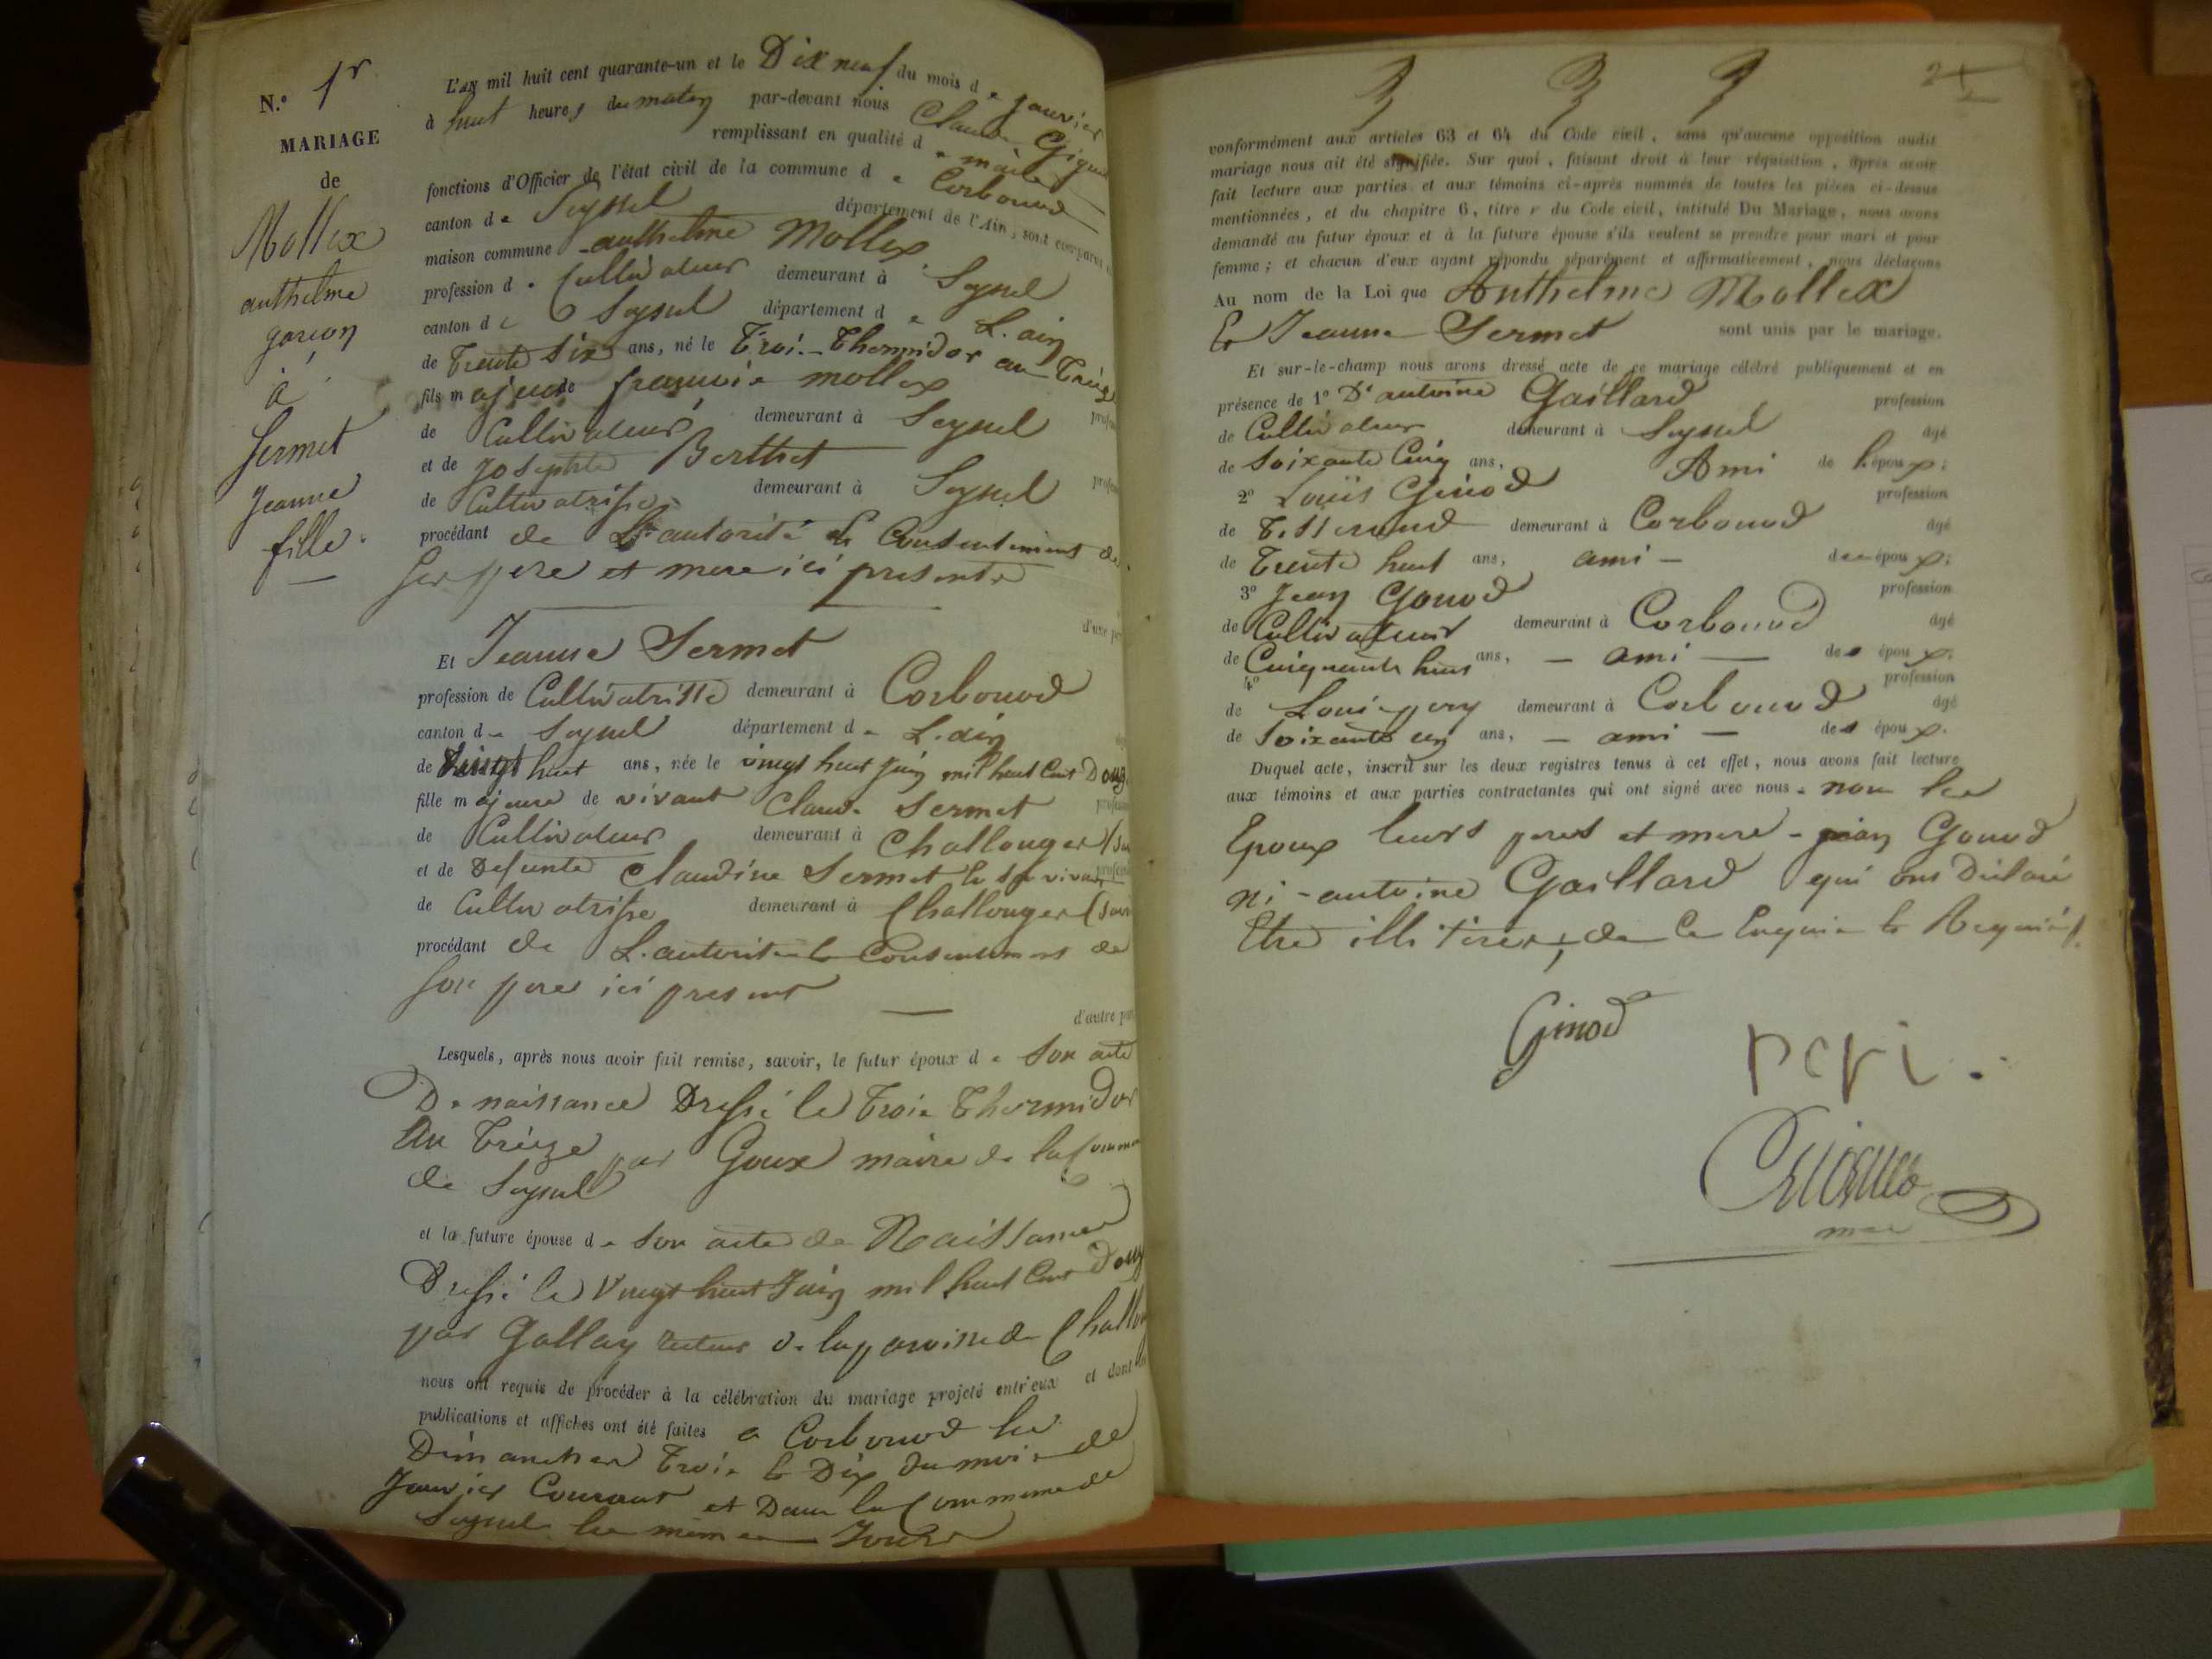 N.º 1r
MARIAGE
de
Mollex
anthelme
garcon
à
Sermet
Jeanne
fille.
L'an mil huit cent quarante-un et le Dix neuf du mois de janvier
à huit heures du matin par-devant nous Claude
remplissant en qualité de maire
fonctions d'Officier de l'état civil de la commune de Corbonod
canton de Seyssel département de l'Ain, sont comparus
maison commune anthelme Mollex
profession de Cultivateur demeurant à Seyssel
canton de Seyssel département de L'ain
de trente six ans, né le trois Thermidor an treize
fils majeur de françois mollex
de Cultivateur demeurant à Seyssel
et de Josephte Berthet
de Cultivatrisse demeurant à Seyssel
procédant de L'autorité et Consentement de
ses pere et mere ici presents
Et Jeanne Sermet
profession de Cultivatrisse demeurant à Corbonod
canton de Seyssel département de L'ain
de vingt huit ans, née le vingt huit juin mil huit cent Douze
fille majeure de vivant Claude Sermet
de Cultivateur demeurant à Challonger
et de Defunte Claudine Sermet
de Cultivatrisse demeurant à Challonger
procédant de L'autorité et Consentement de
son pere ici present
d'autre part
Lesquels, après nous avoir fait remise, savoir, le futur époux de son acte
De naissance Dressé le trois Thermidor
An treize par Goux maire de la Commune
de Seyssel
et la future épouse de son acte de Naissance
Dressé le vingt huit Juin mil huit Cent Douze
par Gallay recteur de la paroisse de
nous ont requis de procéder à la célébration du mariage projeté entr'eux et dont les
publications et affiches ont été faites a Corbonod les
Dimanches trois et Dix du mois de
Janvier Courant et Dans la Commune de
Seyssel les mêmes Jours
2
conformément aux articles 63 et 64 du Code civil, sans qu'aucune opposition audit
mariage nous ait été signifiée. Sur quoi, faisant droit à leur réquisition, après avoir
fait lecture aux parties et aux témoins ci-après nommés de toutes les pièces ci-dessus
mentionnées, et du chapitre 6, titre v du Code civil, intitulé Du Mariage, nous avons
demandé au futur époux et à la future épouse s'ils veulent se prendre pour mari et pour
femme ; et chacun d'eux ayant répondu séparément et affirmativement, nous déclarons
Au nom de la Loi que Anthelme Mollex
Et Jeanne Sermet sont unis par le mariage.
Et sur-le-champ nous avons dressé acte de ce mariage célébré publiquement et en
présence de 1º Dr antoine Gaillard profession
de Cultivateur demeurant à Seyssel âgé
de Soixante Cinq ans, Ami de l'époux ;
2º Louis Ginod profession
de Tisserand demeurant à Corbonod âgé
de Trente huit ans, ami – des époux ;
3º Jean Gonod profession
de Cultivateur demeurant à Corbonod âgé
de Cinquante huit ans, – ami – des époux ;
4º profession
de Louis pery demeurant à Corbonod âgé
de Soixante un ans, – ami – des époux.
Duquel acte, inscrit sur les deux registres tenus à cet effet, nous avons fait lecture
aux témoins et aux parties contractantes qui ont signé avec nous. non les
Epoux leurs peres et mere – jean Gonod
ni – antoine Gaillard qui ont Déclaré
Etre illitérés, de ce Enquis et Requis.
Ginod
peri.